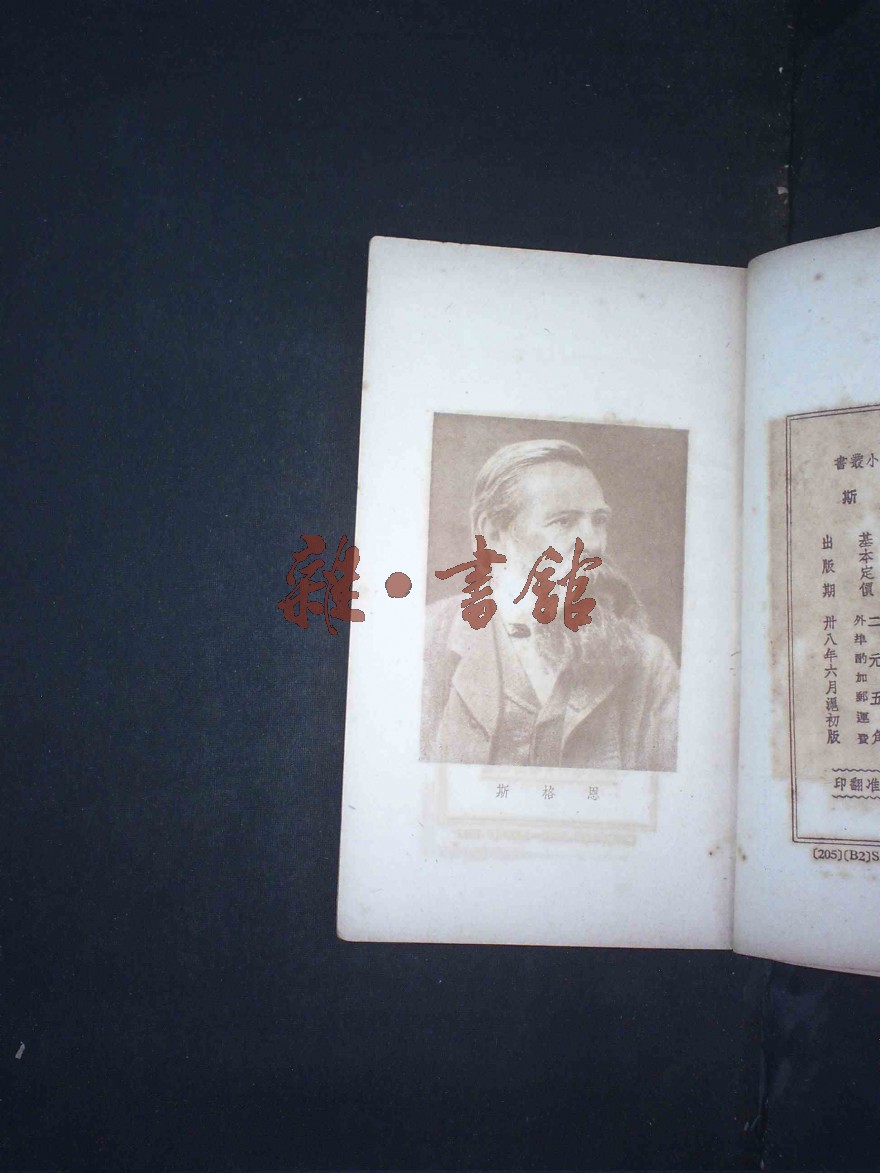 雜·書館
斯格恩
書叢小
斯
基本定價
二元五角
外埠酌加郵運費
出版期
卅八年六月滬初版
印翻准
(205)(B2)S